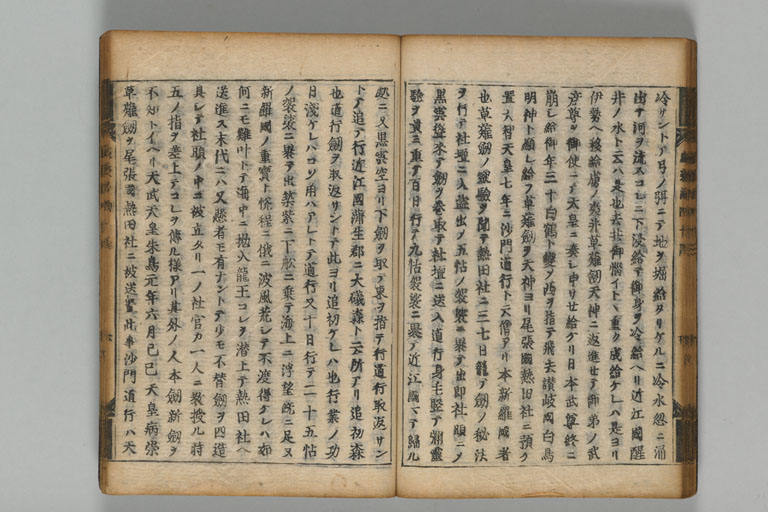 冷サントテ弓ノ弭ニテ地ヲ堀給タリケルニ冷水忽ニ涌
出テ河ヲ流スコレニ下浸給テ御身ヲ冷給ヘリ近江國醒
井ノ水ト云ハ是也去共御惱イトヽ重ク成給ケレハ是ヨリ
伊勢ヘ移給虜ノ夷并草薙劔天神ニ返進セテ御弟ノ武
彦尊ヲ御使ニテ天皇ニ奏シ申サせ給ケリ日本武尊終ニ
崩シ給御年三十白鶴ト變メ西ヲ指テ飛去讃岐國白鳥
明神ト顕レ給フ草薙劔ヲ天神ヨリ尾張國熱田社ニ預ケ
置天智天皇七年ニ沙門道行ト云僧アリ本新羅國者
也草薙劔ノ靈驗ヲ聞テ熱田社ニ三七日籠テ劔ノ秘法
ヲ行テ社壇ニ入盗出メ五帖ノ袈裟ニ裹テ出即社頭ニノ
黒雲聳來テ劔ヲ巻取テ社壇ニ送入道行身毛竪テ弥靈
驗ヲ貴ミ重テ百日行テ九帖袈裟ニ裹テ近江國マテ歸ル
処ニ又黒雲空ヨリ下劔ヲ取テ東ヲ指テ行道行取返サン
トテ追行近江國蒲生郡ニ大礒森ト云所アリ追初森
也道行劔ヲ取返サントテ此ヨリ追初ケレハ也行業ノ功
日淺ケレハコソ角ハアレトテ道行又千日行テ二十五帖
ノ袈裟ニ裹テ出筑紫ニ下舩ニ乗テ海上ニ浮望既ニ足ヌ
新羅國ノ重寶ト悦程ニ俄ニ波風荒レテ不渡得ケレハ如
何ニモ難叶トテ海中ニ抛入龍王コレヲ潜上テ熱田社ヘ
送進ス末代ニハ又懸者モ有ナントテ少モ不替劔ヲ四造
具シテ社頭ノ中ニ被立タリ一ノ社官カ一人ニ教授ル時
五ノ指ヲ差上テコレヲ傳ル様アリ其外ノ人本劔新劔ヲ
不知トイヘリ天武天皇朱鳥元年六月己巳天皇病祟
草薙劔ヲ尾張國熱田社ニ被送置此事沙門道行ハ天